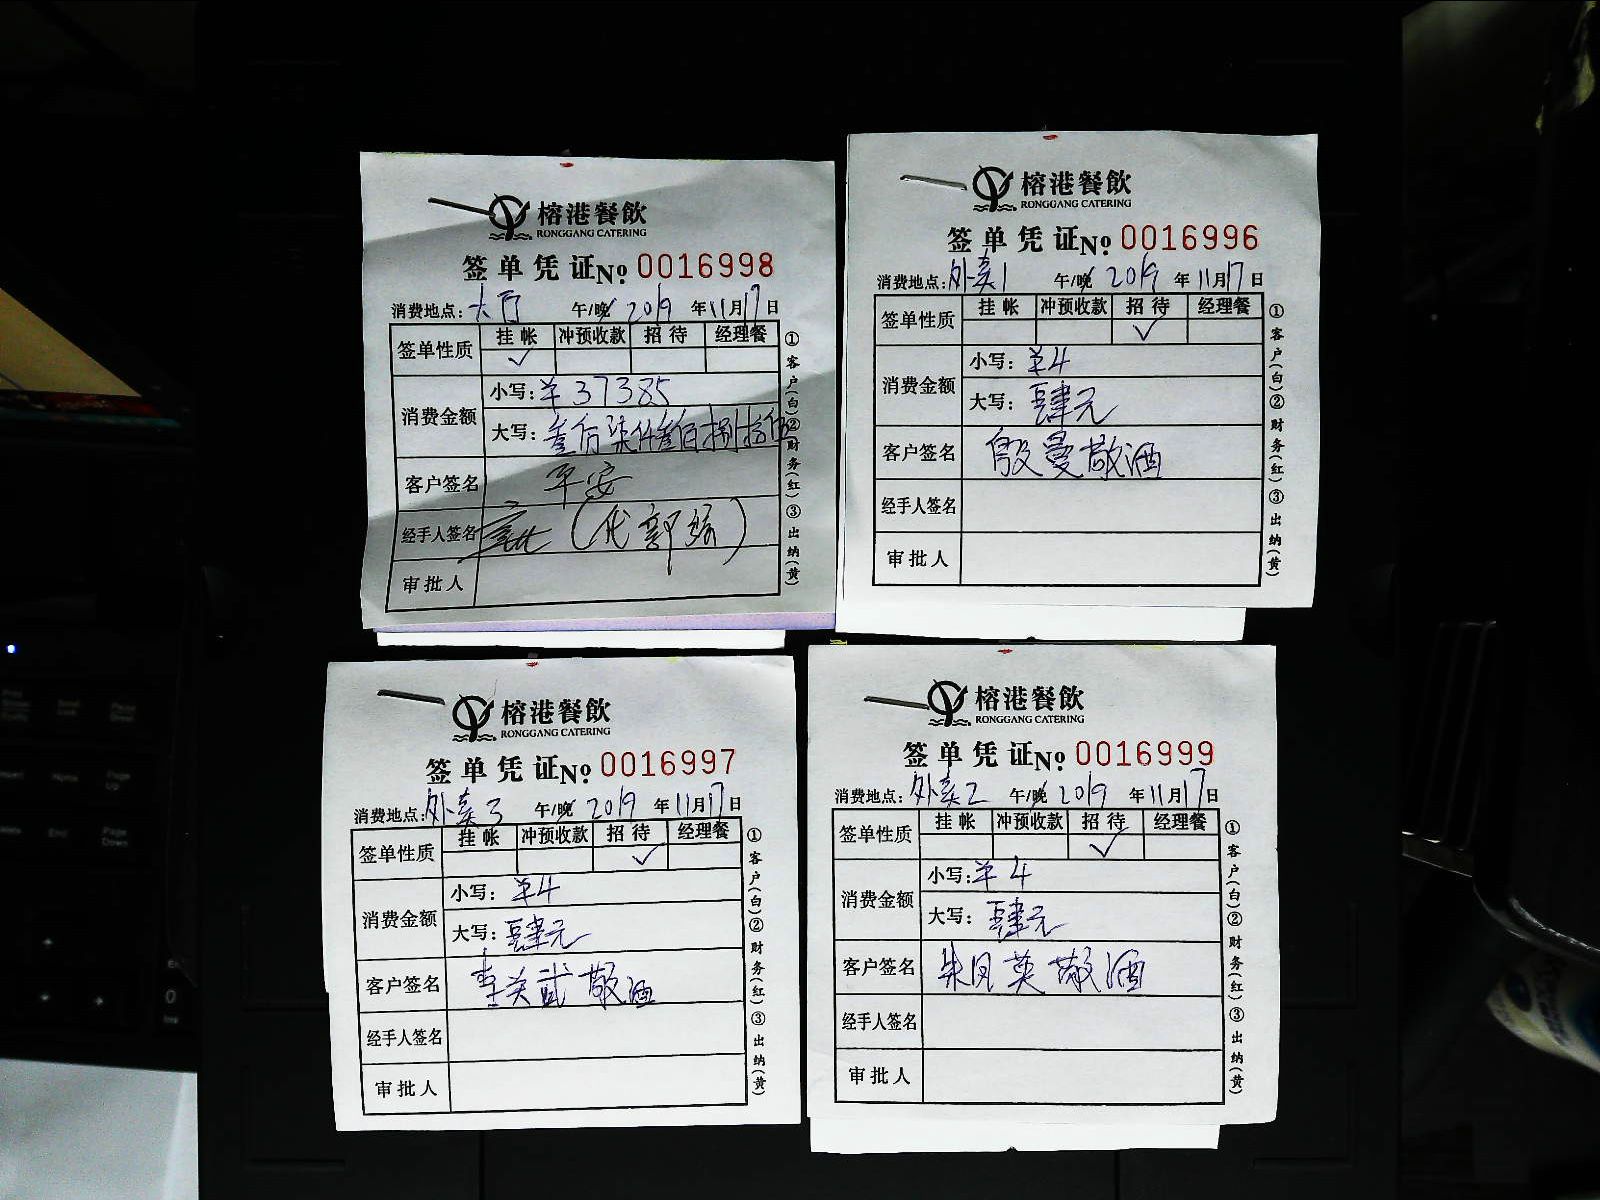 榕港餐飲
RONGGANG CATERING
签单凭证№ 0016998
消费地点: 大厅 午/晚 2019年11月17日
签单性质 挂帐 冲预收款 招待 经理餐
✓
消费金额 小写: ¥37385
大写: 叁万柒仟叁佰捌拾伍
客户签名 平安
经手人签名 (代郭
审批人
①客户(白)②财务(红)③出纳(黄)
榕港餐飲
RONGGANG CATERING
签单凭证№ 0016996
消费地点: 外卖1 午/晚 2019年11月17日
签单性质 挂帐 冲预收款 招待 经理餐
✓
消费金额 小写: ¥4
大写: 肆元
客户签名 殷曼敬酒
经手人签名
审批人
①客户(白)②财务(红)③出纳(黄)
榕港餐飲
RONGGANG CATERING
签单凭证№ 0016997
消费地点: 外卖3 午/晚 2019年11月17日
签单性质 挂帐 冲预收款 招待 经理餐
✓
消费金额 小写: ¥4
大写: 肆元
客户签名 李关武敬酒
经手人签名
审批人
①客户(白)②财务(红)③出纳(黄)
榕港餐飲
RONGGANG CATERING
签单凭证№ 0016999
消费地点: 外卖2 午/晚 2019年11月17日
签单性质 挂帐 冲预收款 招待 经理餐
✓
消费金额 小写: ¥4
大写: 肆元
客户签名 朱凤英敬酒
经手人签名
审批人
①客户(白)②财务(红)③出纳(黄)